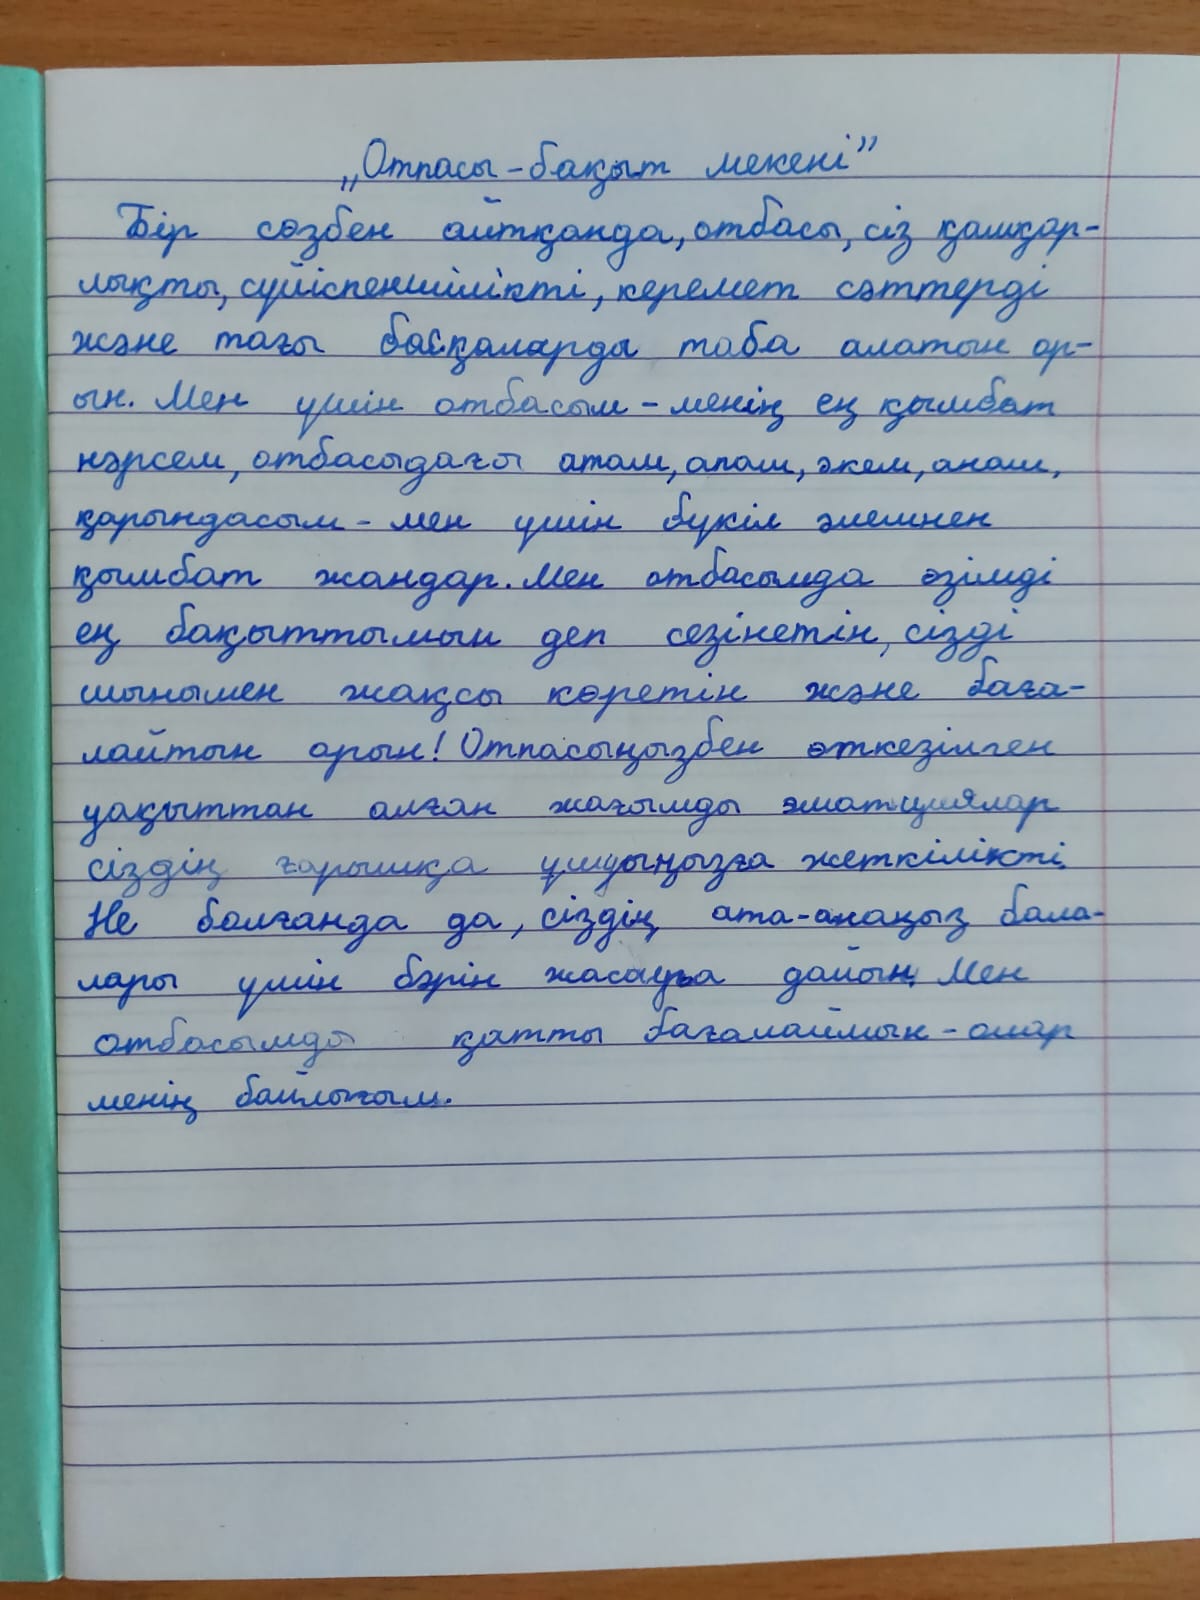 „Отпасы - бақыт мекені”
Бір сөзбен айтқанда, отбасы, сіз қамқор-
лықты, сүйіспеншілікті, керемет сәттерді
және тағы басқаларда таба алатын ор-
ын. Мен үшін отбасым - менің ең қымбат
нәрсем, отбасыдағы атам, апам, әкем, анам,
қарындасым - мен үшін бүкіл әлемнен
қымбат жандар. Мен отбасымда өзімді
ең бақыттымын деп сезінетін, сізді
шынымен жақсы көретін және баға-
лайтын орын! Отпасыңызбен өткезілген
уақыттан алған жағымды эматциялар
сіздің ғарышқа ұшуыңызға жеткілікті.
Не болғанда да, сіздің ата-анаңыз бала-
лары үшін бәрін жасауға дайын. Мен
отбасымды қатты бағалаймын - олар
менің байлығым.